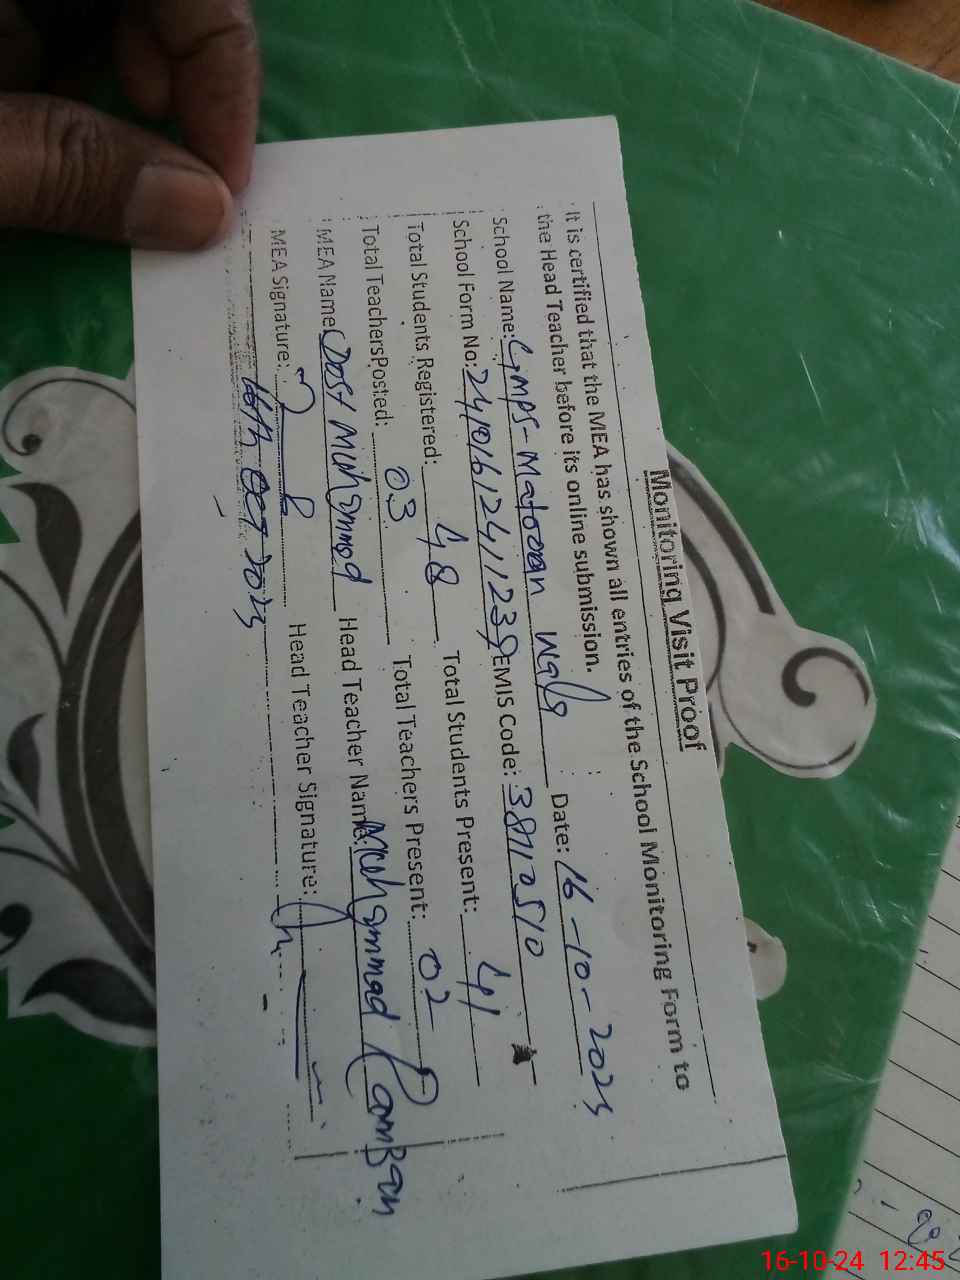 Monitoring Visit Proof
It is certified that the MEA has shown all entries of the School Monitoring Form to
the Head Teacher before its online submission.
School Name: GMPS-Matooan Wala Date: 16-10-2023
School Form No: 241016124111239 EMIS Code: 38710510
Total Students Registered: 48 Total Students Present: 41
Total Teachers Posted: 03 Total Teachers Present: 02
MEA Name: Dost Muhammad Head Teacher Name: Muhammad Ramzan
MEA Signature: Head Teacher Signature:
16th Oct 2023
16-10-24 12:45